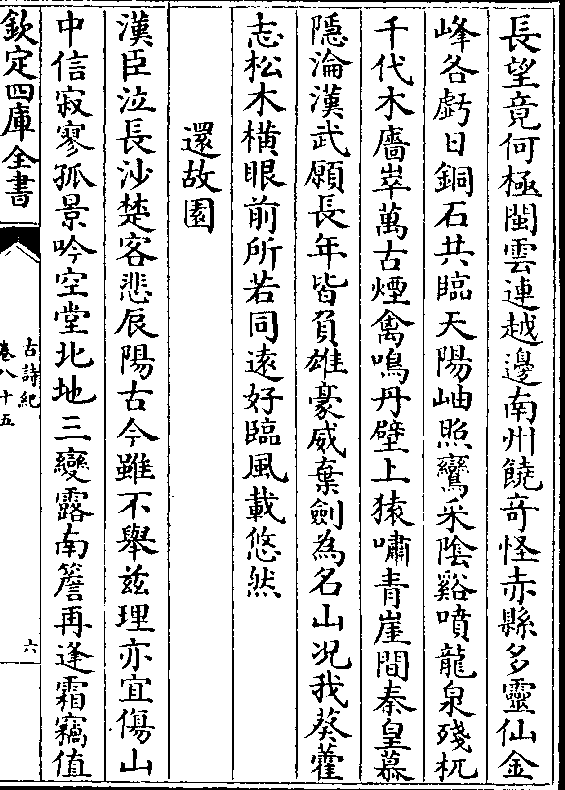 長望竟何極閩雲連越邊南州饒竒怪赤縣多靈仙金
峰各虧日銅石共臨天陽岫照鸞采陰谿噴龍泉殘杌
千代木廧崒萬古煙禽鳴丹壁上猿嘯青崖間秦皇慕
隱淪漢武願長年皆負雄豪威棄劍為名山况我葵藿
志松木横眼前所若同逺好臨風載悠然
還故園
漢臣泣長沙楚客悲辰陽古今雖不舉兹理亦宜傷山
中信寂寥孤景吟空堂北地三變露南簷再逢霜竊值
欽定四庫全書
古詩紀
卷八十五
六